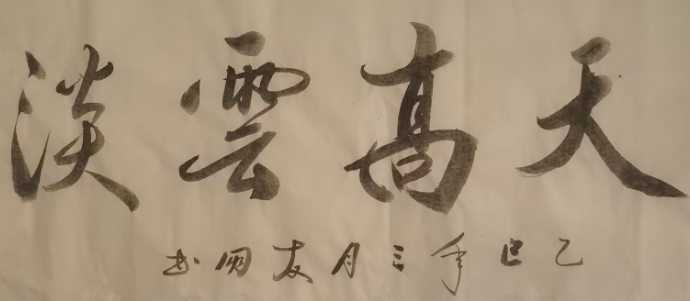 天高雲淡
乙巳年三月友国书